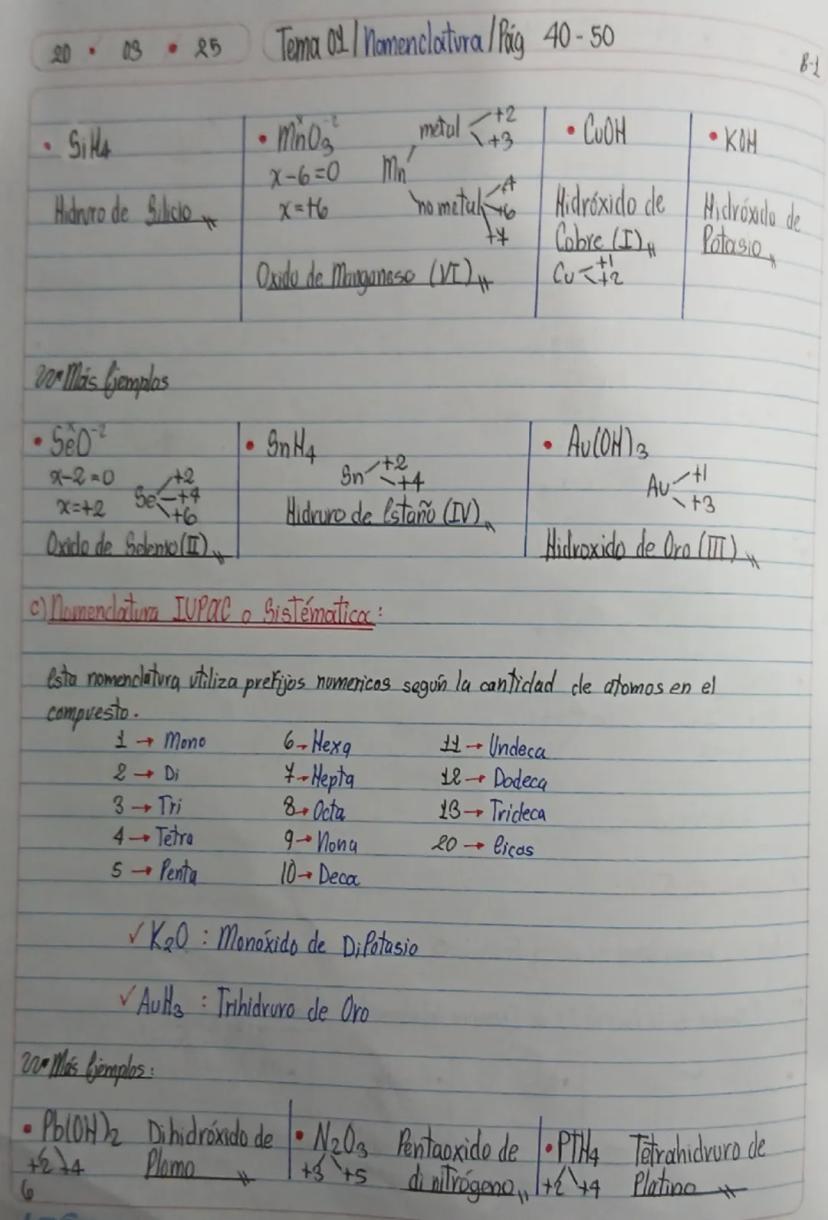 20 • 03 • 25 Tema 01/Nomenclatura/Pág 40-50
B-1
• SiH4
Hidruro de Silicio
• MnO3 x -2
x-6=0
x=+6
Mn
metal +2 +3
no metal +4 +6 +7
Oxido de Manganeso (VI)
• CuOH
Hidróxido de
Cobre (I)
Cu +1 +2
• KOH
Hidróxido de
Potasio
Más Ejemplos
• SeO x -2
x-2=0
x=+2
Se +2 +4 +6
Oxido de Selenio (II)
• SnH4
Sn +2 +4
Hidruro de Estaño (IV)
• Au(OH)3
Au +1 +3
Hidroxido de Oro (III)
c) Nomenclatura IUPAC o Sistématica:
Esta nomenclatura utiliza prefijos numericos según la cantidad de atomos en el
compuesto.
1 → Mono 6 → Hexa 11 → Undeca
2 → Di 7 → Hepta 12 → Dodeca
3 → Tri 8 → Octa 13 → Trideca
4 → Tetra 9 → Nona 20 → Eicos
5 → Penta 10 → Deca
✓ K2O : Monóxido de DiPotasio
✓ AuH3 : Trihidruro de Oro
Más Ejemplos:
• Pb(OH)2 Dihidróxido de
+2 +4 Plomo
• N2O3 Pentaoxido de
+3 +5 dinitrógeno
• PTH4 Tetrahidruro de
+2 +4 Platino
6